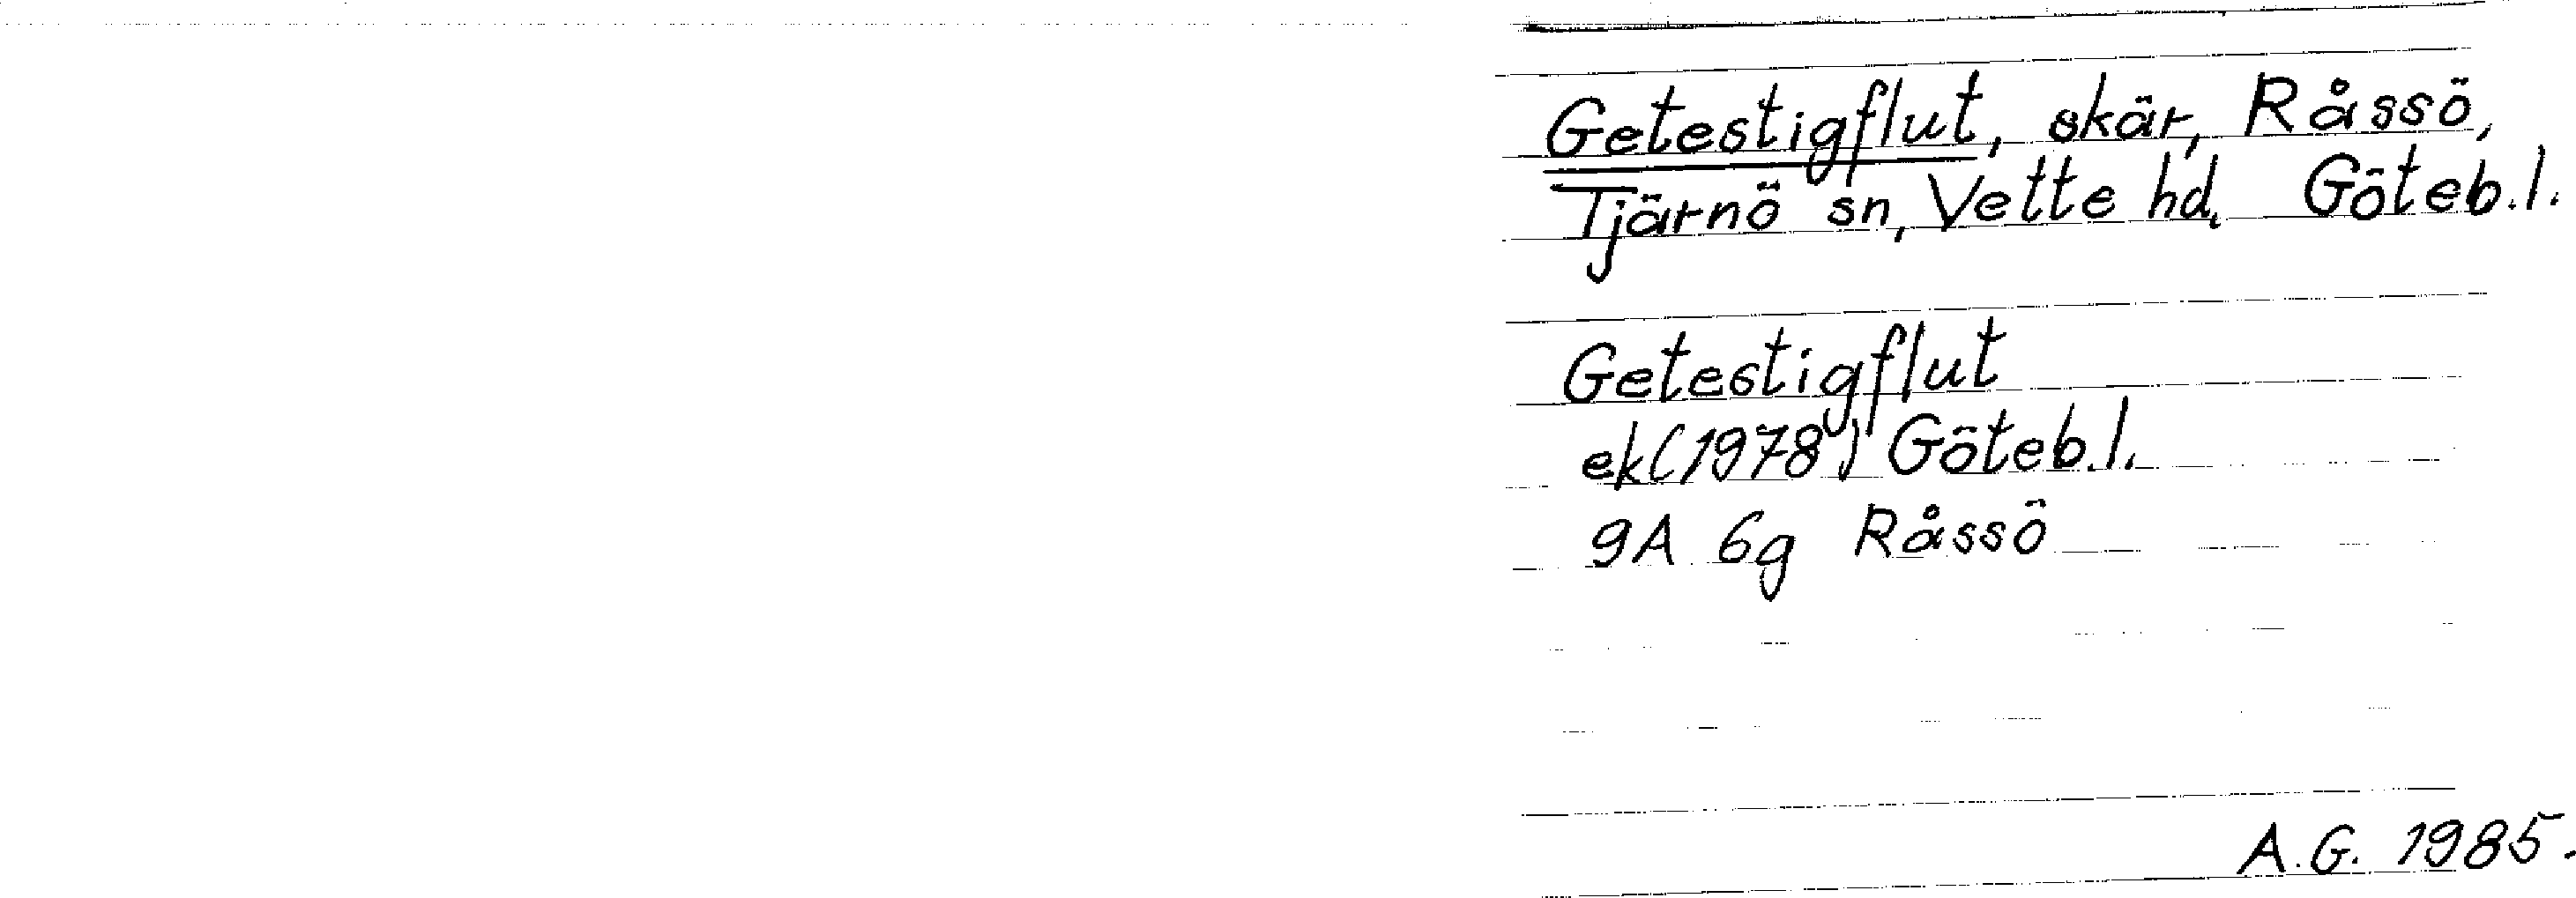 Getestigflut, skär, Råssö,
Tjärnö sn, Vette hd, Göteb.l.
Getestigflut
ek(1978) Göteb.l.
9A 6g Råssö
A.G. 1985.